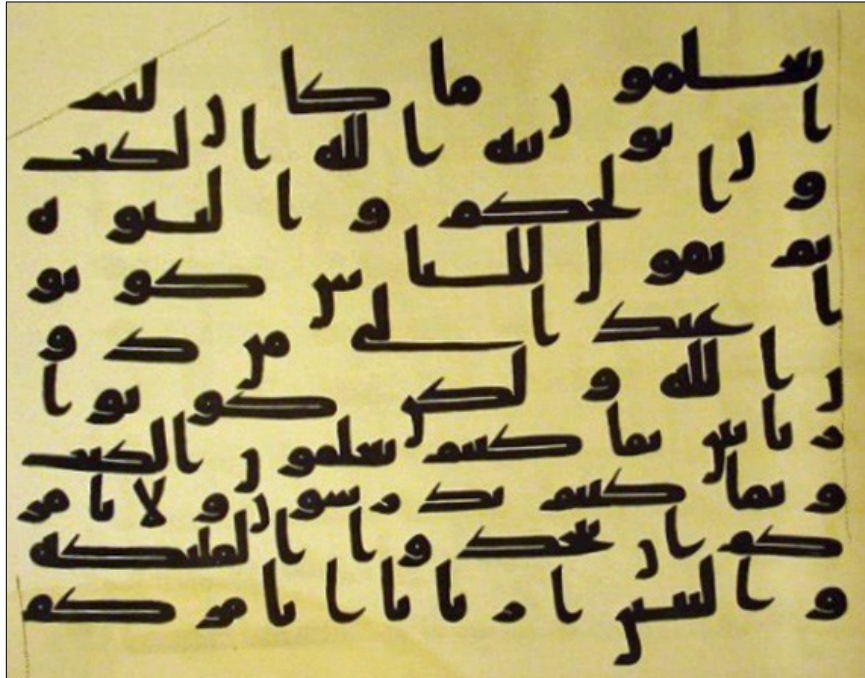 يعلمو ن ما كا ن لبشـ
ر ا ن يو تيه ا لله ا لكتب
و ا لحكم و ا لنبو ه
ثم يقو ل للنا س كو نو
ا عبد ا لى من د و
ن ا لله و لكن كو نو ا
ر با نين بما كنتم تعلمو ن ا لكتب
و بما كنتم تد ر سو ن و لا يا مر
كم ا ن تتخذ و ا ا لملئكه
و ا لنبين ا ر با با ا يا مر كم